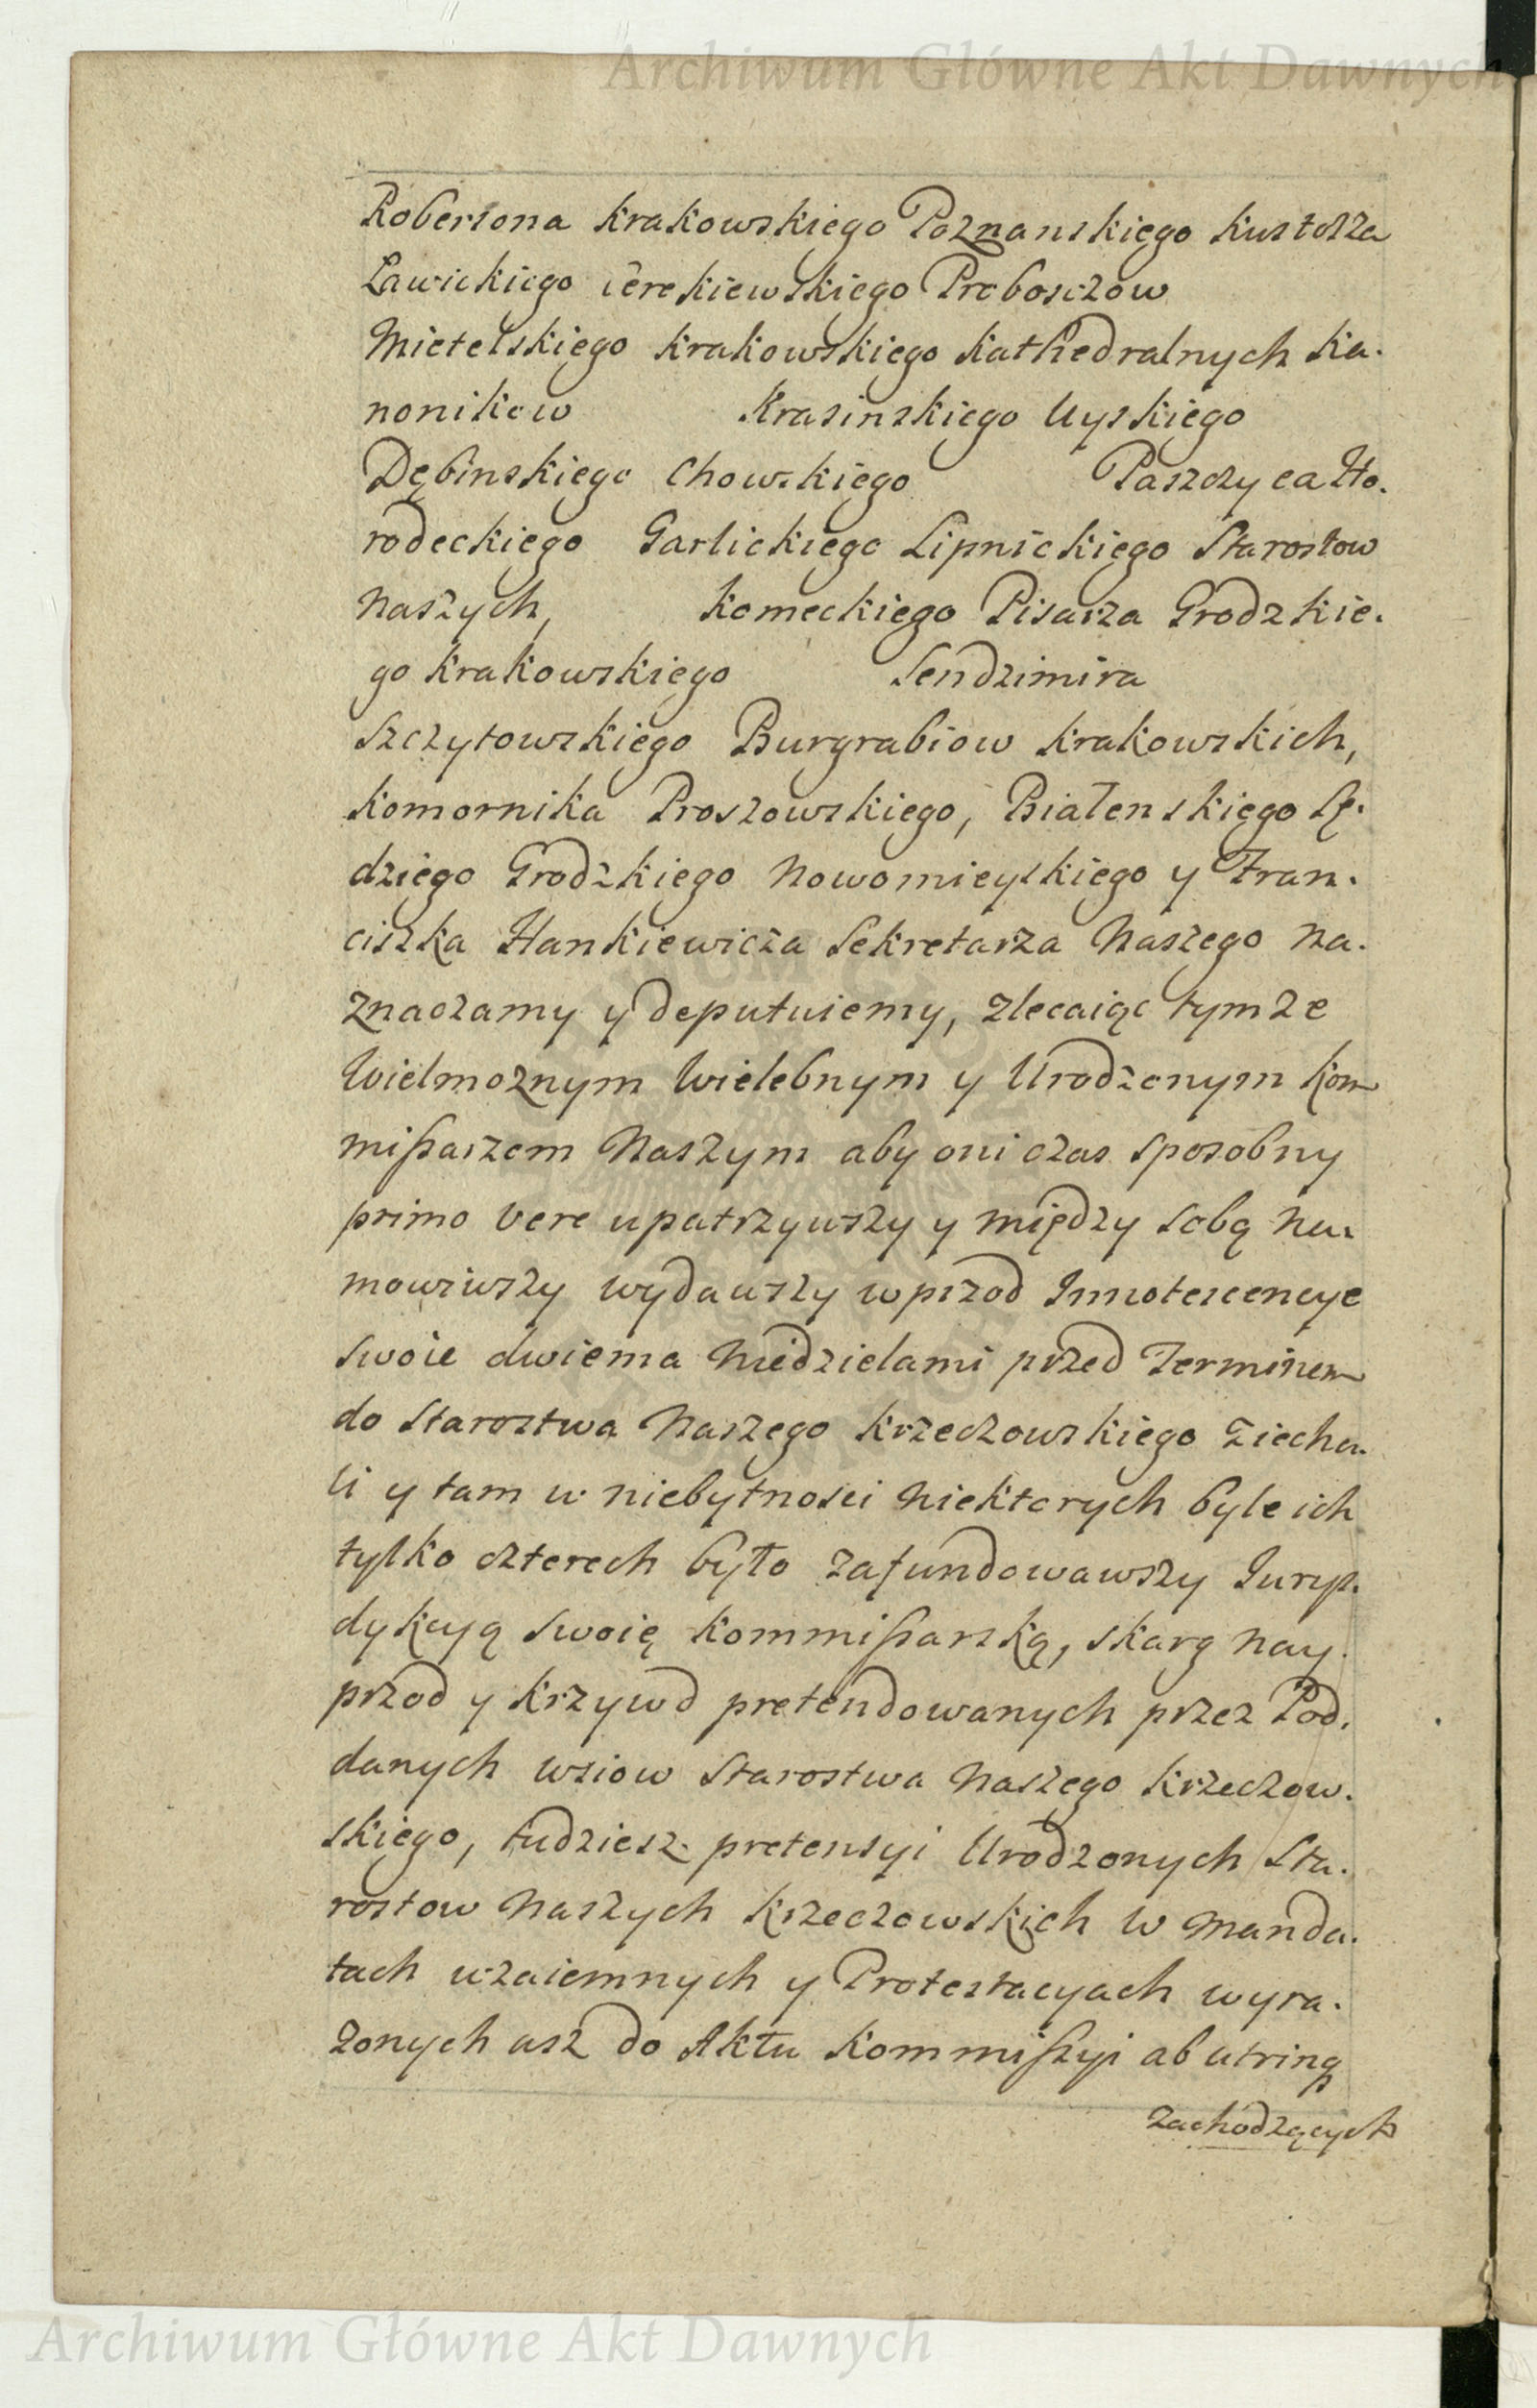 Archiwum Główne Akt Dawnych
Robertona Krakowskiego Poznanskiego Kustosza
Ławickiego Cerekiewskiego Proboszczow
Mietelskiego Krakowskiego Kathedralnych Ka.
nonikow Krasinskiego Uyskiego
Dębinskiego Chowskiego Paszczyca Ho.
rodeckiego Garlickiego Lipnickiego Starostow
Naszych, Komeckiego Pisarza Grodzkie.
go Krakowskiego Sendzimira
Szczytowskiego Burgrabiow Krakowskich,
Komornika Proszowskiego, Białenskiego Sę.
dziego Grodzkiego Nowomieyskiego y Fran.
ciszka Hankiewicza Sekretarza Naszego na.
znaczamy y deputuiemy, zlecaiąc tymze
Wielmoznym Wielebnym y Urodzonym Kom
mißarzom Naszym aby oni czas sposobny
primo vere upatrzywszy y między sobą na.
mowiwszy wydawszy wprzod Innotescencye
swoie dwiema Niedzielami przed Terminem
do Starostwa Naszego Krzeczowskiego Ziecha.
li y tam w niebytnosci niektorych byle ich
tylko czterech było zafundowawszy Juryz.
dykcyą swoię Kommißarską, skarg nay.
przod y Krzywd pretendowanych przez Pod.
danych wsiow Starostwa Naszego Krzeczow.
skiego, tudziesz pretensyi Urodzonych Sta.
rostow Naszych Krzeczowskich w Manda.
tach wzaiemnych y Protestacyach wyra.
zonych asz do Aktu Kommißyi ab utrinq
zachodzących
Archiwum Główne Akt Dawnych